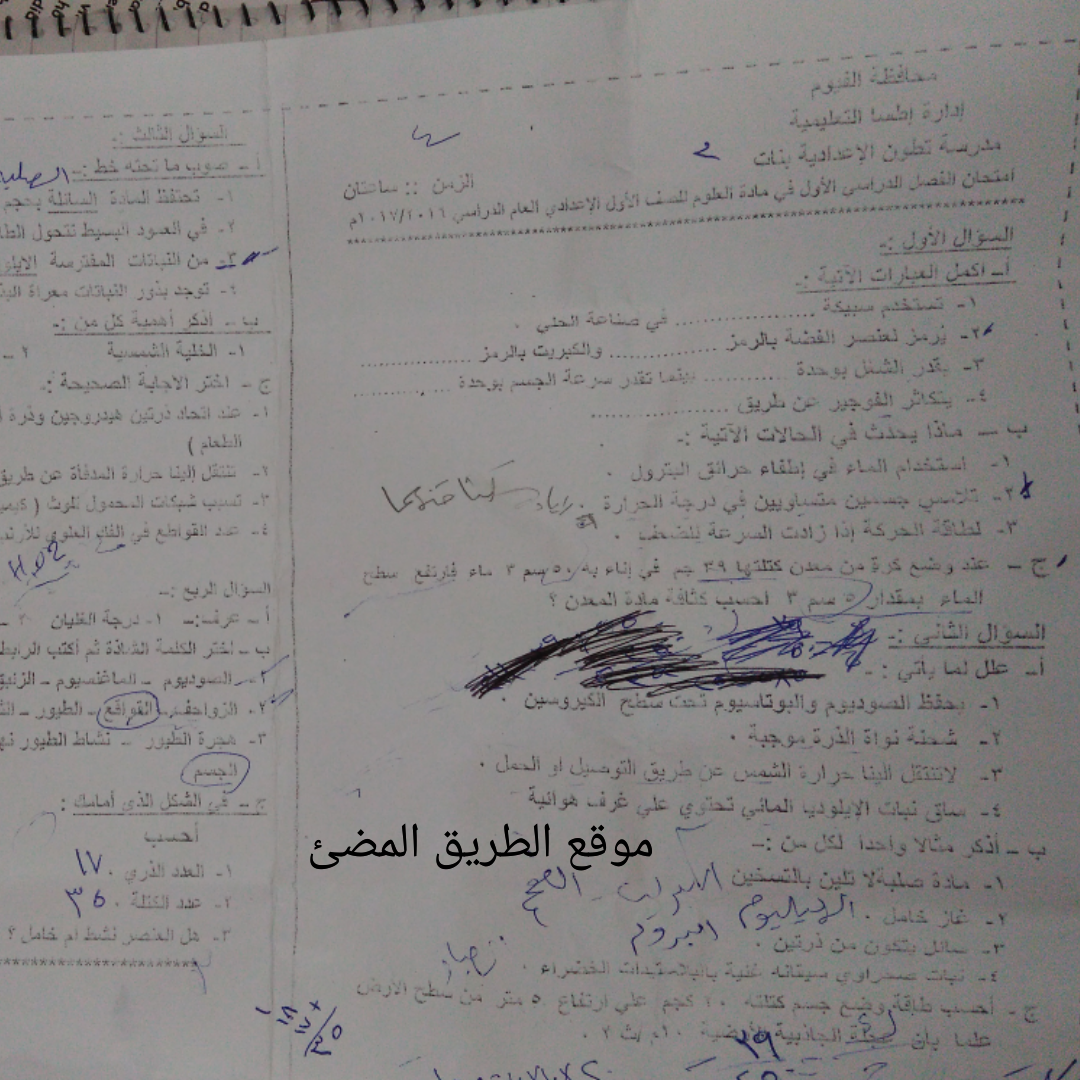 محافظة الفيوم
إدارة إطسا التعليمية
مدرسة تطون الإعدادية بنات
الزمن :: ساعتان
امتحان الفصل الدراسي الأول في مادة العلوم للصف الأول الإعدادي العام الدراسي ٢٠١٧/٢٠١٦م
السؤال الأول :-
أ- أكمل العبارات الآتية :-
١- تستخدم سبيكة .................... في صناعة الحلي .
٢- يُرمز لعنصر الفضة بالرمز ............... والكبريت بالرمز ...............
٣- يقدر الشغل بوحدة ............ بينما تقدر سرعة الجسم بوحدة ............
٤- يتكاثر الفوجير عن طريق ....................
ب – ماذا يحدث في الحالات الآتية :-
١- استخدام الماء في إطفاء حرائق البترول .
٢- تلامس جسمين متساويين في درجة الحرارة .
٣- لطاقة الحركة إذا زادت السرعة للضعف .
ج – عند وضع كرة من معدن كتلتها ٣٩ جم في إناء به ٥٠ سم ٣ ماء فارتفع سطح
الماء بمقدار ٥ سم ٣ احسب كثافة مادة المعدن ؟
السؤال الثاني :-
أ- علل لما يأتي : -
١- يحفظ الصوديوم والبوتاسيوم تحت سطح الكيروسين .
٢- شحنة نواة الذرة موجبة .
٣- لاتنتقل الينا حرارة الشمس عن طريق التوصيل او الحمل .
٤- ساق نبات الإيلوديا المائي تحتوي علي غرف هوائية
ب – أذكر مثالا واحدا لكل من :-
١- مادة صلبة لا تلين بالتسخين الكبريت - الفحم
٢- غاز خامل . الهيليوم
٣- سائل يتكون من ذرتين . البروم
٤- نبات صحراوي سيقانه غنية بالبلاستيدات الخضراء .
ج - أحسب طاقة وضع جسم كتلته ١٠ كجم علي ارتفاع ٥ متر من سطح الأرض
علما بان عجلة الجاذبية الأرضية ١٠م/ث ٢ .
السؤال الثالث :-
أ – صوب ما تحته خط :-
١- تحتفظ المادة السائلة بحجم
٢- في العمود البسيط تتحول
٣- من النباتات المفترسة
٤- توجد بذور النباتات معراة
ب – أذكر أهمية كل من :-
١- الخلية الشمسية ٢ –
ج – اختر الاجابة الصحيحة :-
١- عند اتحاد ذرتين هيدروجين وذرة
الطعام )
٢- تنتقل إلينا حرارة المدفأة عن طريق
٣- تسبب شبكات المحمول تلوث (
٤- عدد القواطع في الفك العلوي
السؤال الربع :-
أ – عرف:- ١- درجة الغليان ٢ –
ب – اختر الكلمة الشاذة ثم أكتب
١- الصوديوم – الماغنسيوم –
٢- الزواحف – القواقع – الطيور –
٣- هجرة الطيور – نشاط الطيور
الجسم
ج – في الشكل الذي أمامك :
أحسب
١- العدد الذري . ١٧
٢- عدد الكتلة . ٣٥
٣- هل العنصر نشط ام خامل ؟
موقع الطريق المضئ